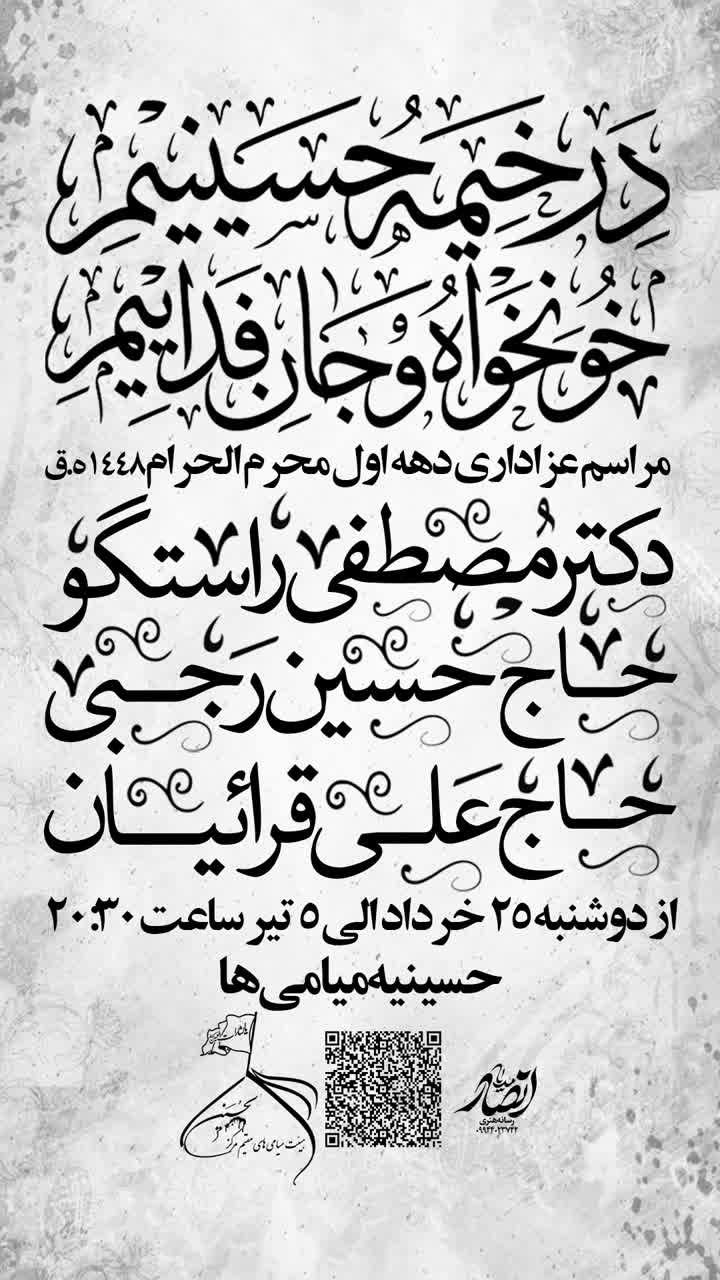 در خیمه حسینیم
خونخواه و جان فداییم
مراسم عزاداری دهه اول محرم الحرام ۱۴۴۸ ه.ق
دکتر مصطفی راستگو
حاج حسین رجبی
حاج علی قرائیان
از دوشنبه ۲۵ خرداد الی ۵ تیر ساعت ۲۰:۳۰
حسینیه میامی‌ها
هیئت میامی های مقیم مرکز
انصار
رسانه هنری